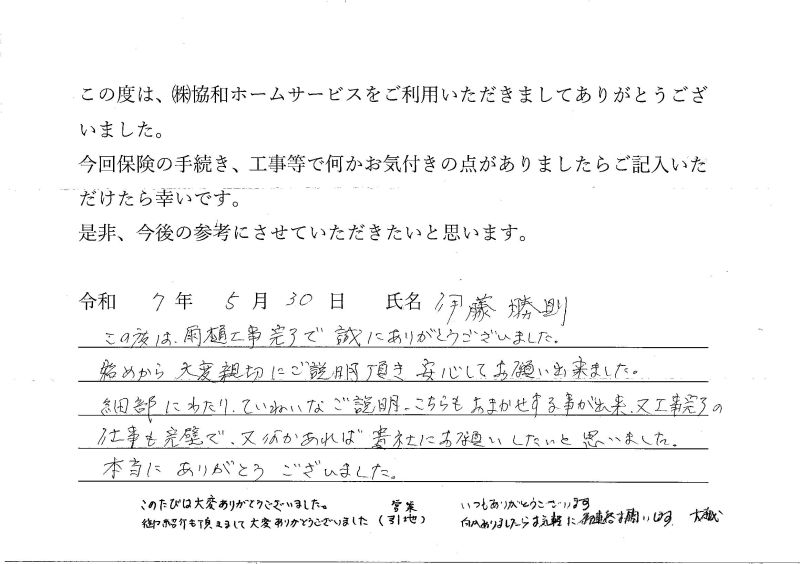 この度は、㈱協和ホームサービスをご利用いただきましてありがとうござ
いました。
今回保険の手続き、工事等で何かお気付きの点がありましたらご記入いた
だけたら幸いです。
是非、今後の参考にさせていただきたいと思います。
令和 7 年 5 月 30 日 氏名 伊藤 勝則
この度は、雨樋工事完了で 誠にありがとうございました。
始めから 大変親切にご説明頂き 安心してお願い出来ました。
細部にわたり、ていねいなご説明、こちらもおまかせする事が出来、又工事完了の
仕事も完璧で、又何かあれば 貴社にお願いしたいと思いました。
本当に ありがとう ございました。
このたびは大変ありがとうございました。 営業 いつもありがとうございます
御紹介も頂きまして大変ありがとうございました (引地) 何かありましたらお気軽に御連絡お願いします